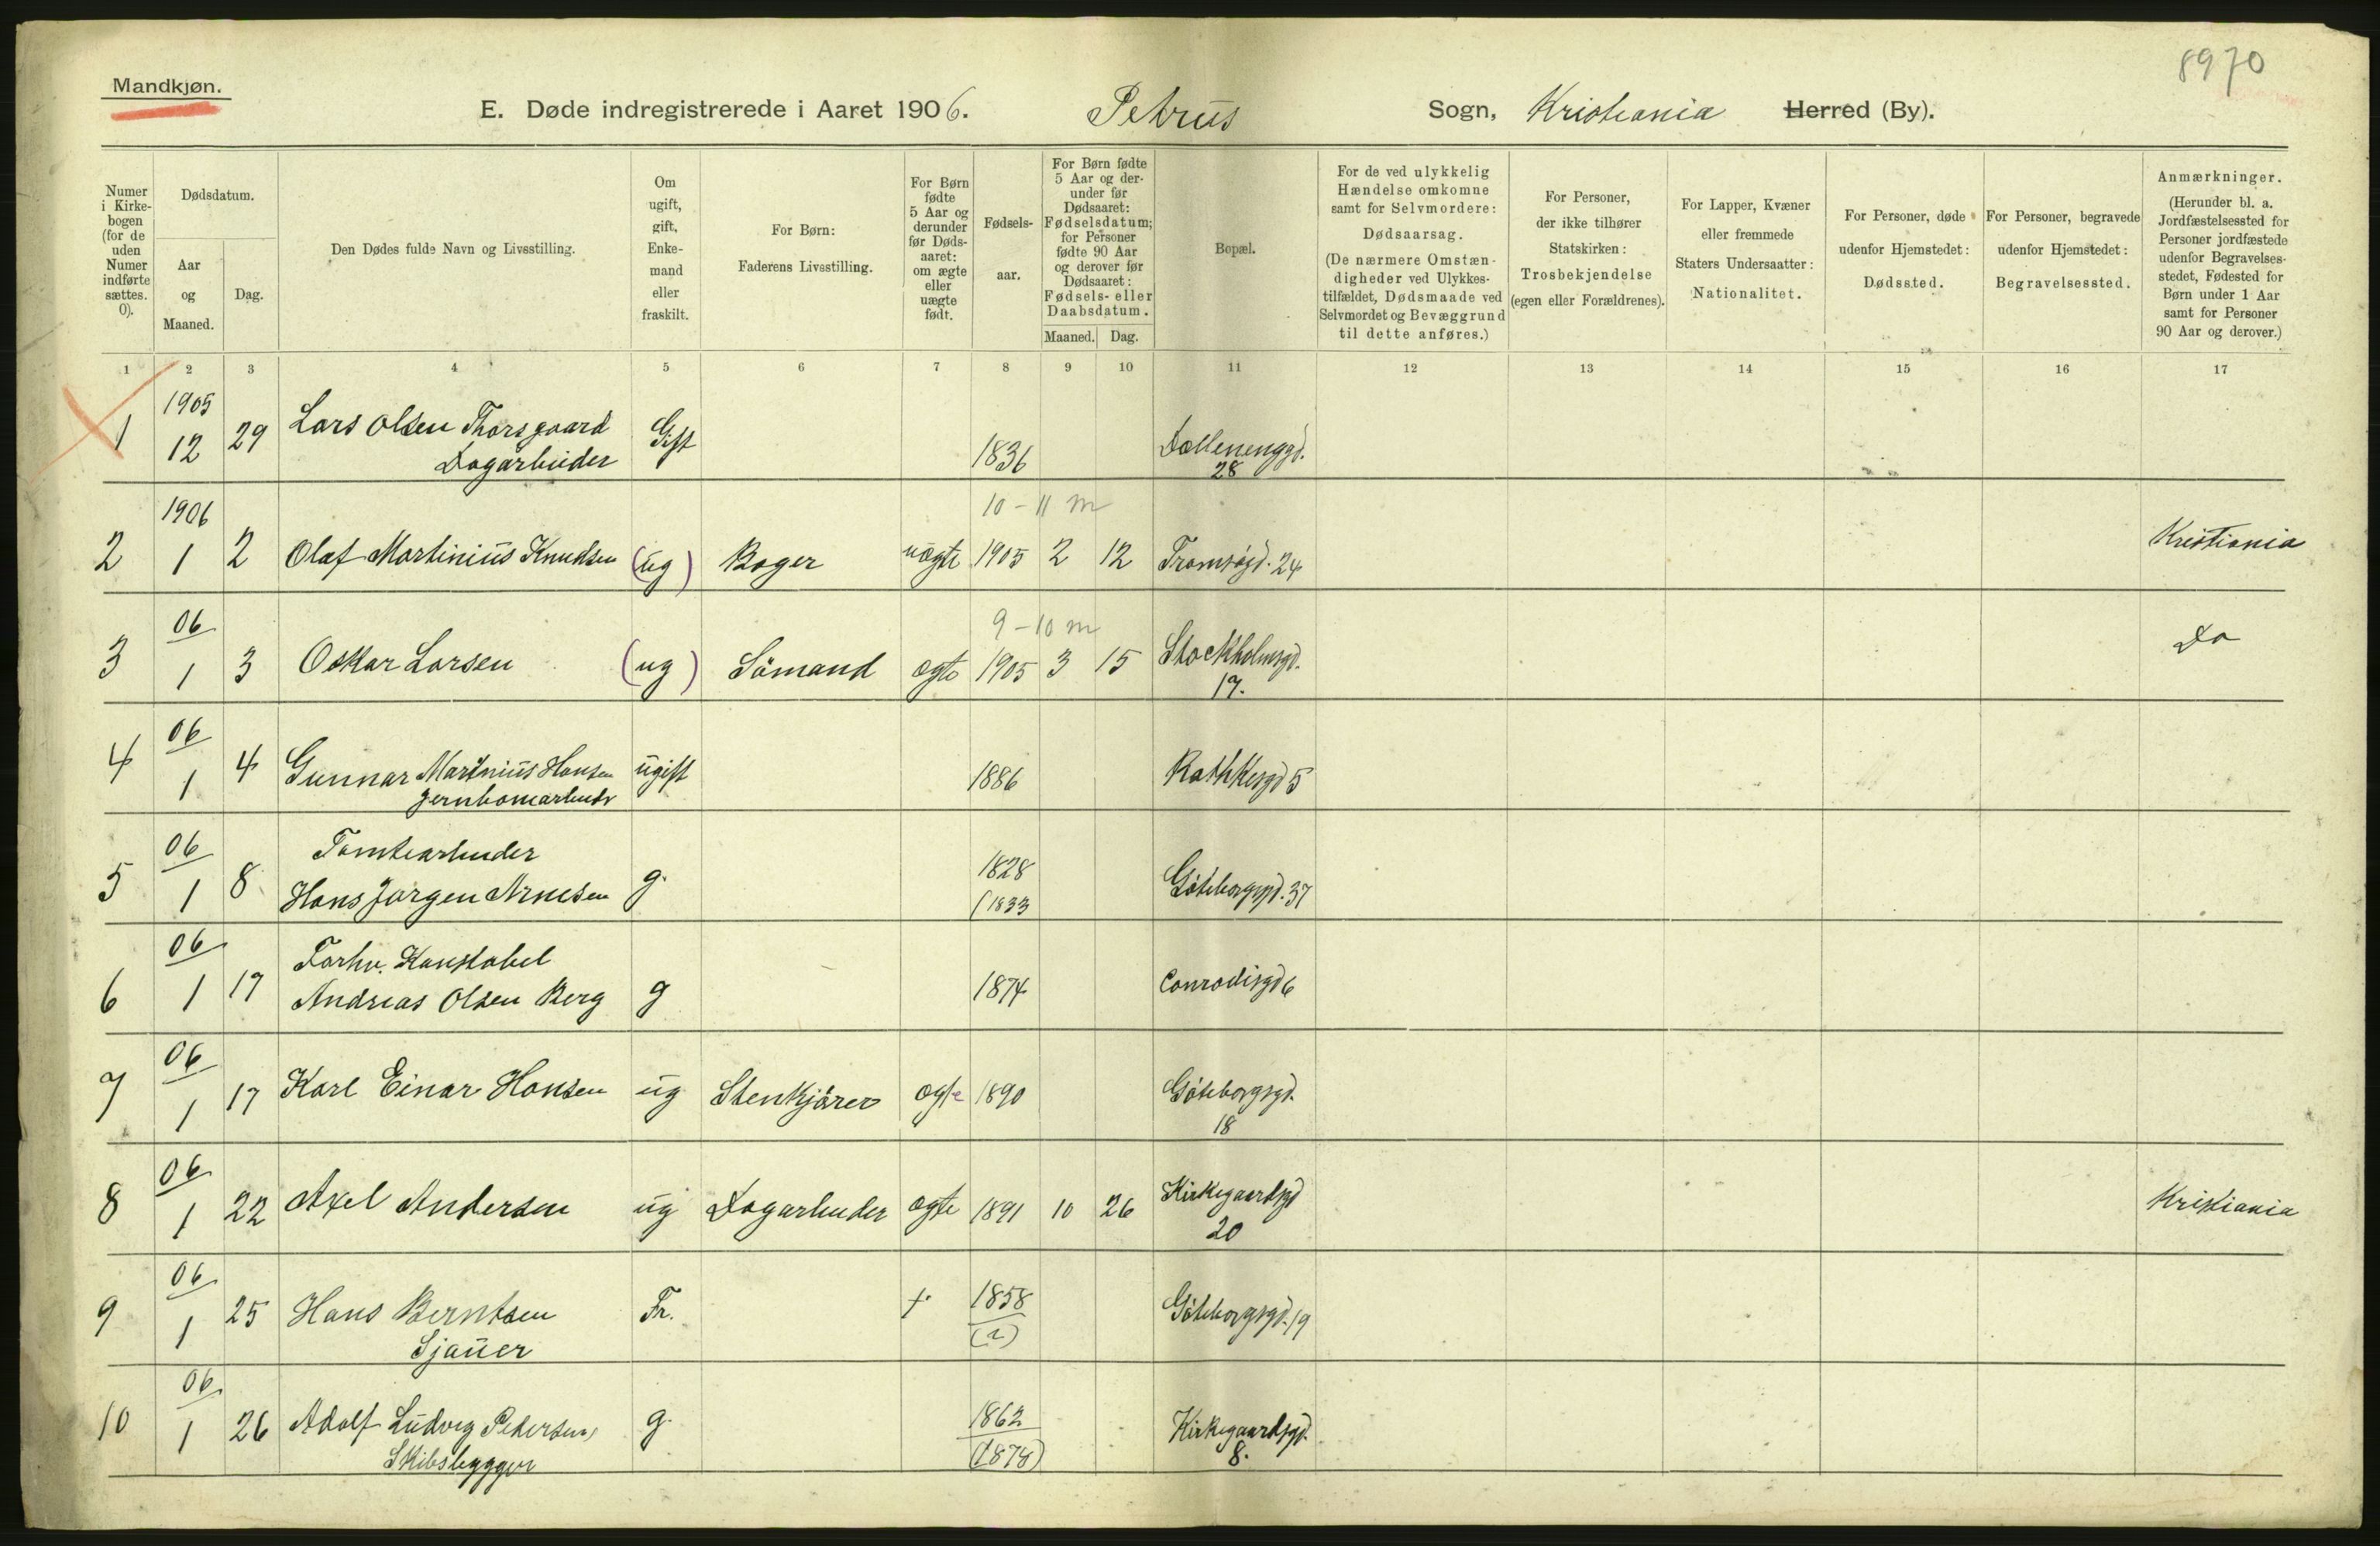 8970
Mandkjøn.
E. Døde indregistrerede i Aaret 1906. Petrus Sogn, Kristiania Herred (By).
Numer i Kirke-bogen (for de uden Numer indførte sættes. 0).
Dødsdatum.
Aar og Maaned.
Dag.
Den Dødes fulde Navn og Livsstilling.
Om ugift, gift, Enke-mand eller fraskilt.
For Børn: Faderens Livsstilling.
For Børn fødte 5 Aar og derunder før Døds-aaret: om ægte eller uægte født.
Fødsels-aar.
For Børn fødte 5 Aar og der-under før Dødsaaret: Fødselsdatum; for Personer fødte 90 Aar og derover før Dødsaaret: Fødsels- eller Daabsdatum.
Maaned. Dag.
Bopæl.
For de ved ulykkelig Hændelse omkomne samt for Selvmordere: Dødsaarsag. (De nærmere Omstæn-digheder ved Ulykkes-tilfældet, Dødsmaade ved Selvmordet og Bevæggrund til dette anføres.)
For Personer, der ikke tilhører Statskirken: Trosbekjendelse (egen eller Forældrenes).
For Lapper, Kvæner eller fremmede Staters Undersaatter: Nationalitet.
For Personer, døde udenfor Hjemstedet: Dødssted.
For Personer, begravede udenfor Hjemstedet: Begravelsessted.
Anmærkninger. (Herunder bl. a. Jordfæstelsessted for Personer jordfæstede udenfor Begravelses-stedet, Fødested for Børn under 1 Aar samt for Personer 90 Aar og derover.)
1 2 3 4 5 6 7 8 9 10 11 12 13 14 15 16 17
1905
1 12 29 Lars Olsen Thorsgaard Gift 1836 Dællenenggd.
Dagarbeider 28
1906 10-11 m
2 1 2 Olaf Martinius Knudsen (ug) Bager uægte 1905 2 12 Tromsøgd. 24 Kristiania
06 9-10 m
3 1 3 Oskar Larsen (ug) Sömand ægte 1905 3 15 Stockholmsgd. Do
17.
06
4 1 4 Gunnar Martinius Hansen ugift 1886 Rathkesgd 5
06
Tomtearbeider 1828
5 1 8 Hans Jørgen Arnesen g. (1833 Göteborgsgd. 37
06
Forhv. Konstabel
6 1 17 Andreas Olsen Berg g 1874 Conradisgd 6
06
7 1 17 Karl Einar Hansen ug Stenkjører ægte 1890 Göteborgsgd.
18
06
8 1 22 Axel Andersen ug Dagarbeider ægte 1891 10 26 Kirkegaardsgd Kristiania
20
06
9 1 25 Hans Berntsen Fr. 1858 Göteborgsgd. 19
Sjauer
06
10 1 26 Adolf Ludvig Pedersen g. 1862 Kirkegaardsgd.
Skibsbygger (1878) 8.